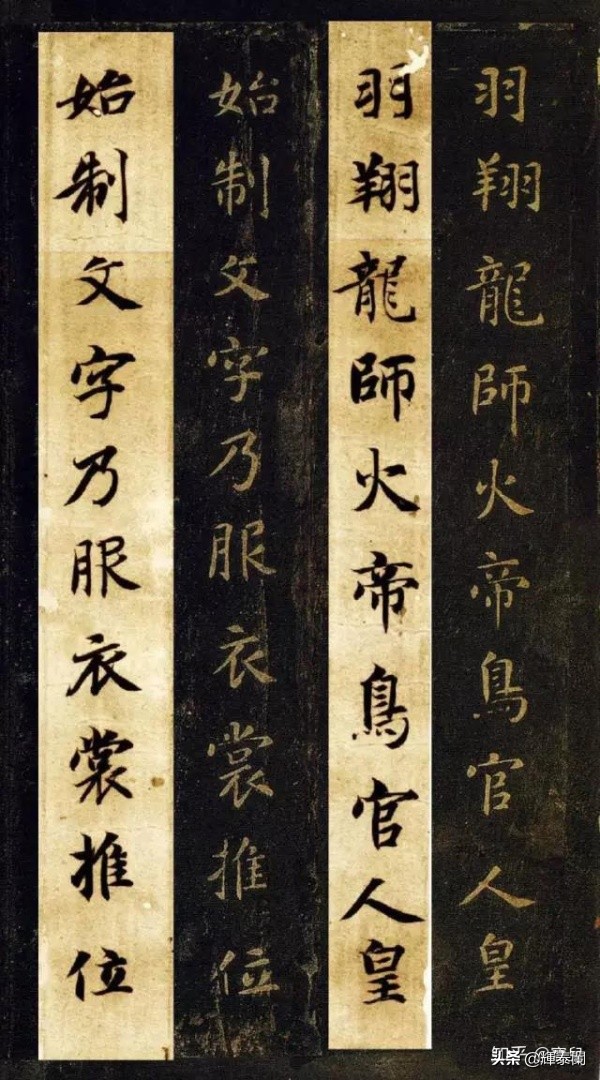 羽翔龍師火帝鳥官人皇
羽翔龍師火帝鳥官人皇
始制文字乃服衣裳推位
始制文字乃服衣裳推位
头条 @輝泰閣